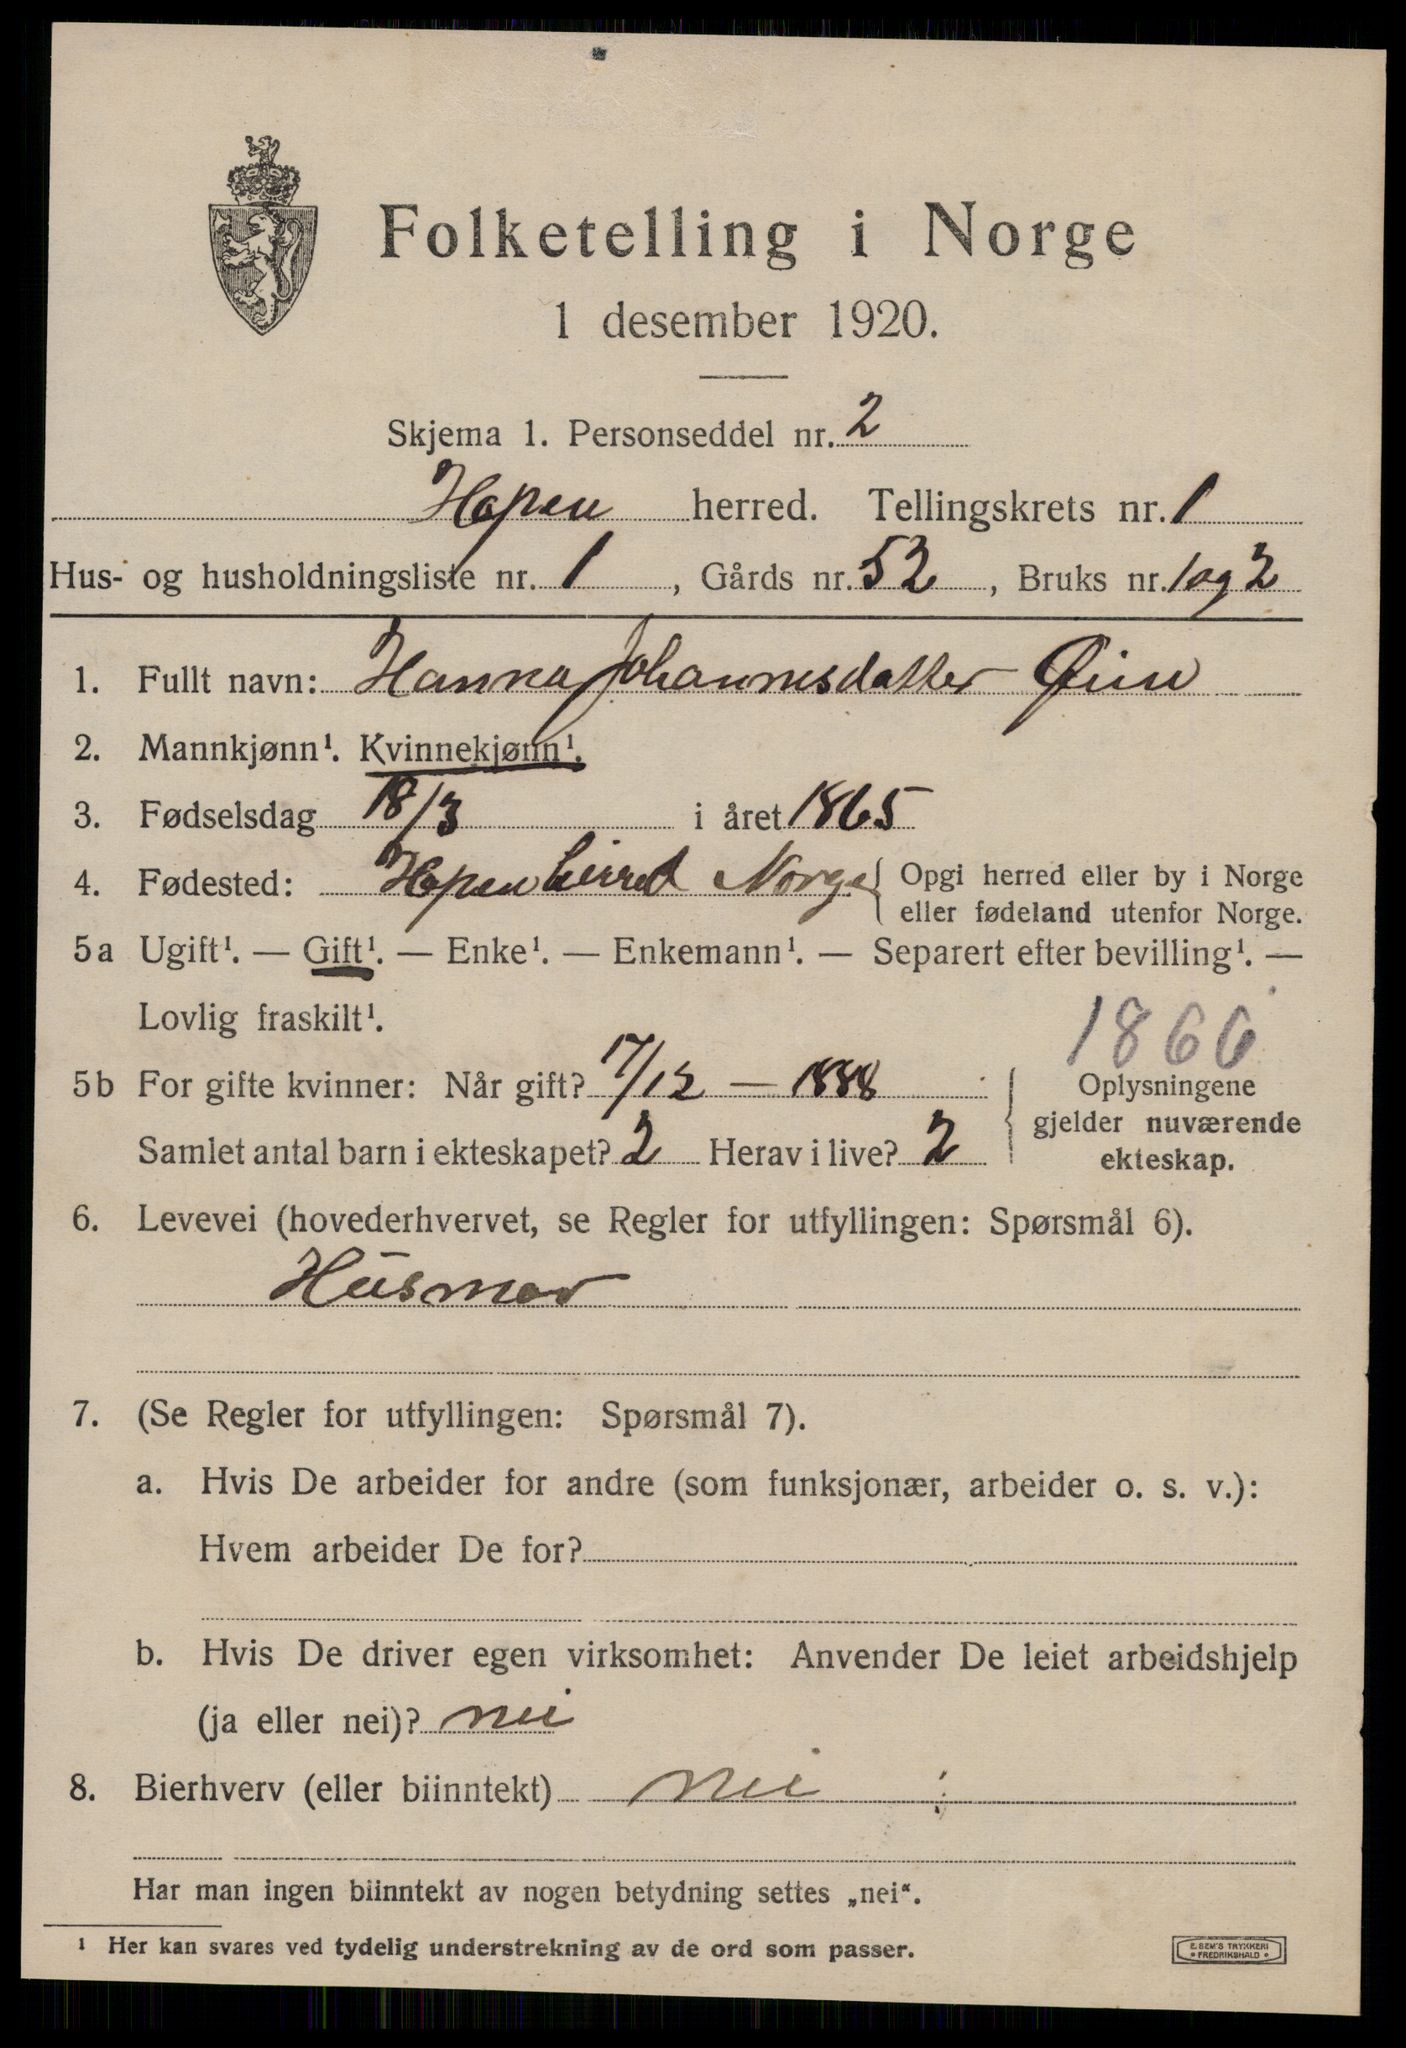 Folketelling i Norge
1 desember 1920.
Skjema 1. Personseddel nr. 2
Hopen herred. Tellingskrets nr. 1
Hus- og husholdningsliste nr. 1, Gårds nr. 52, Bruks nr. 1 og 2
1. Fullt navn: Hanna Johannesdatter Øien
2. Mannkjønn¹. Kvinnekjønn¹.
3. Fødselsdag 18/3 i året 1865
4. Fødested: Hopen herred Norge { Opgi herred eller by i Norge
eller fødeland utenfor Norge.
5a Ugift¹. — Gift¹. — Enke¹. — Enkemann¹. — Separert efter bevilling¹. —
Lovlig fraskilt¹.
1866
5b For gifte kvinner: Når gift? 17/12 — 1888 { Oplysningene
gjelder nuværende
Samlet antal barn i ekteskapet? 2 Herav i live? 2 ekteskap.
6. Levevei (hovederhvervet, se Regler for utfyllingen: Spørsmål 6).
Husmor
7. (Se Regler for utfyllingen: Spørsmål 7).
a. Hvis De arbeider for andre (som funksjonær, arbeider o. s. v.):
Hvem arbeider De for?
b. Hvis De driver egen virksomhet: Anvender De leiet arbeidshjelp
(ja eller nei)? nei
8. Bierhverv (eller biinntekt) nei
Har man ingen biinntekt av nogen betydning settes „nei".
¹ Her kan svares ved tydelig understrekning av de ord som passer.
E. SEM'S TRYKKERI
FREDRIKSHALD